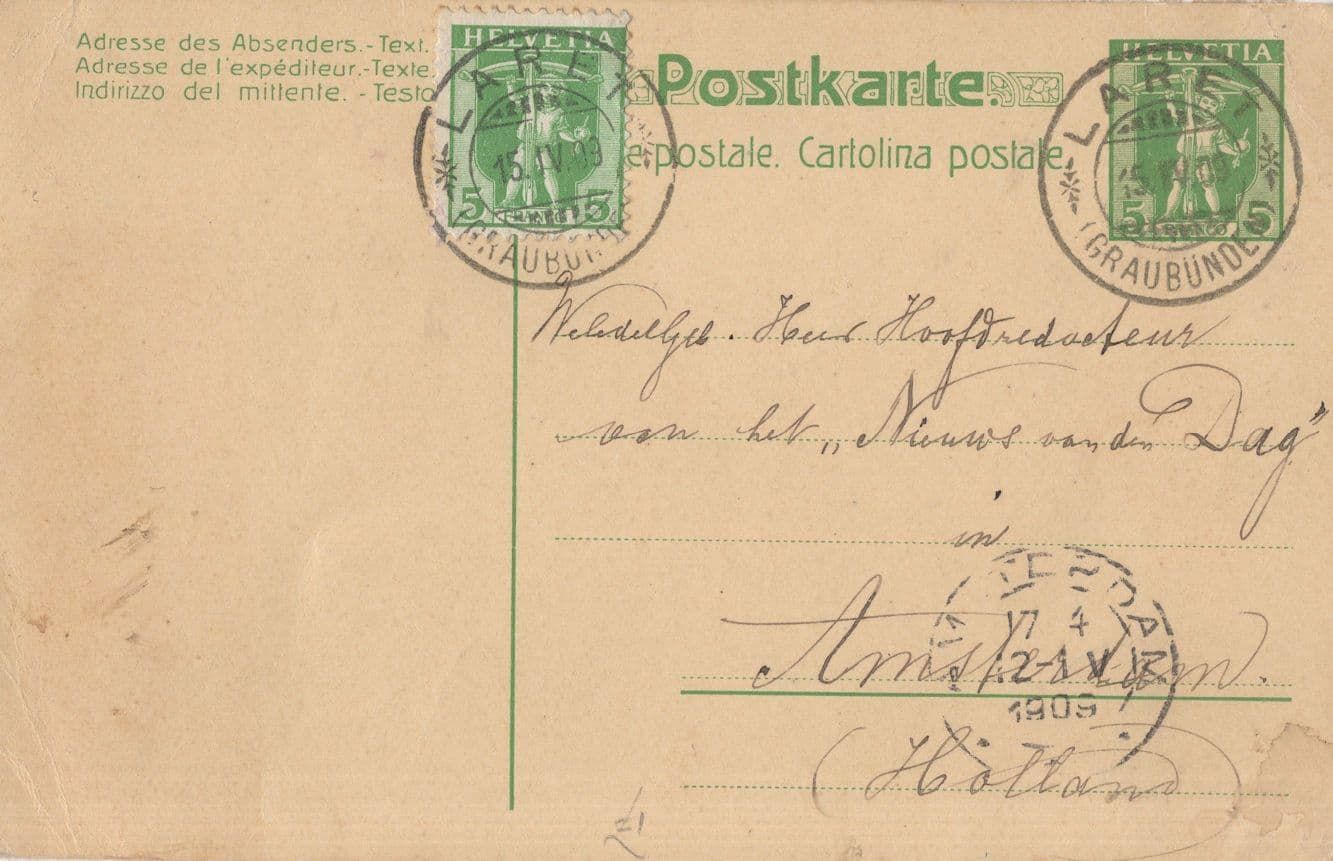 Adresse des Absenders.-Text.
Adresse de l'expéditeur.-Texte.
Indirizzo del mittente. - Testo
HELVETIA
5 FRANCO 5
LARET
15.IV.09
(GRAUBÜND
Postkarte.
e postale. Cartolina postale.
HELVETIA
5 FRANCO 5
LARET
15.IV.09
(GRAUBÜNDEN
WelEdelGeb. Heer Hoofdredacteur
van het „Nieuws van den Dag"
in
Amsterdam.
(Holland)
AMSTERDAM
17 4
12-1 V
1909